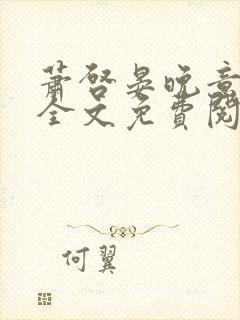 萧启晏晚意
全文免费阅
何翼